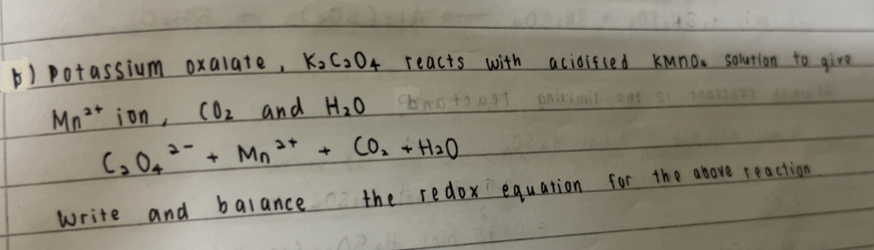 b) Potassium oxalate, K₂C₂O₄ reacts with acidified KMnO₄ solution to give
Mn²⁺ ion, CO₂ and H₂O
C₂O₄²⁻ + Mn²⁺ + CO₂ + H₂O
Write and balance the redox equation for the above reaction